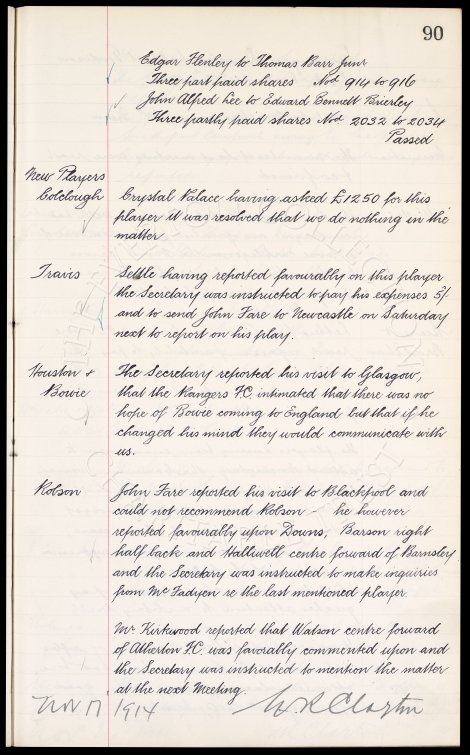 90
Edgar Henley to Thomas Barr Junr
Three part paid shares Nod 914 to 916
John Alfred Lee to Edward Bennett Brierley
Three partly paid shares Nod 2032 to 2034
Passed
New Players
Colclough
Crystal Palace having asked £1250 for this
player it was resolved that we do nothing in the
matter
Travis
Settle having reported favourably on this player
the Secretary was instructed to pay his expenses 5/-
and to send John Fare to Newcastle on Saturday
next to report on his play.
Houston +
Bowie
The Secretary reported his visit to Glasgow,
that the Rangers F.C. intimated that there was no
hope of Bowie coming to England but that if he
changed his mind they would communicate with
us.
Robson
John Fare reported his visit to Blackpool and
could not recommend Robson - he however
reported favourably upon Downs, Barson right
half back and Halliwell centre forward of Barnsley
and the Secretary was instructed to make inquiries
from Mc Fadyen re the last mentioned player.
Mr Kirkwood reported that Watson centre forward
of Atherton F.C. was favorably commented upon and
the Secretary was instructed to mention the matter
at the next Meeting.
Nov 17 1914